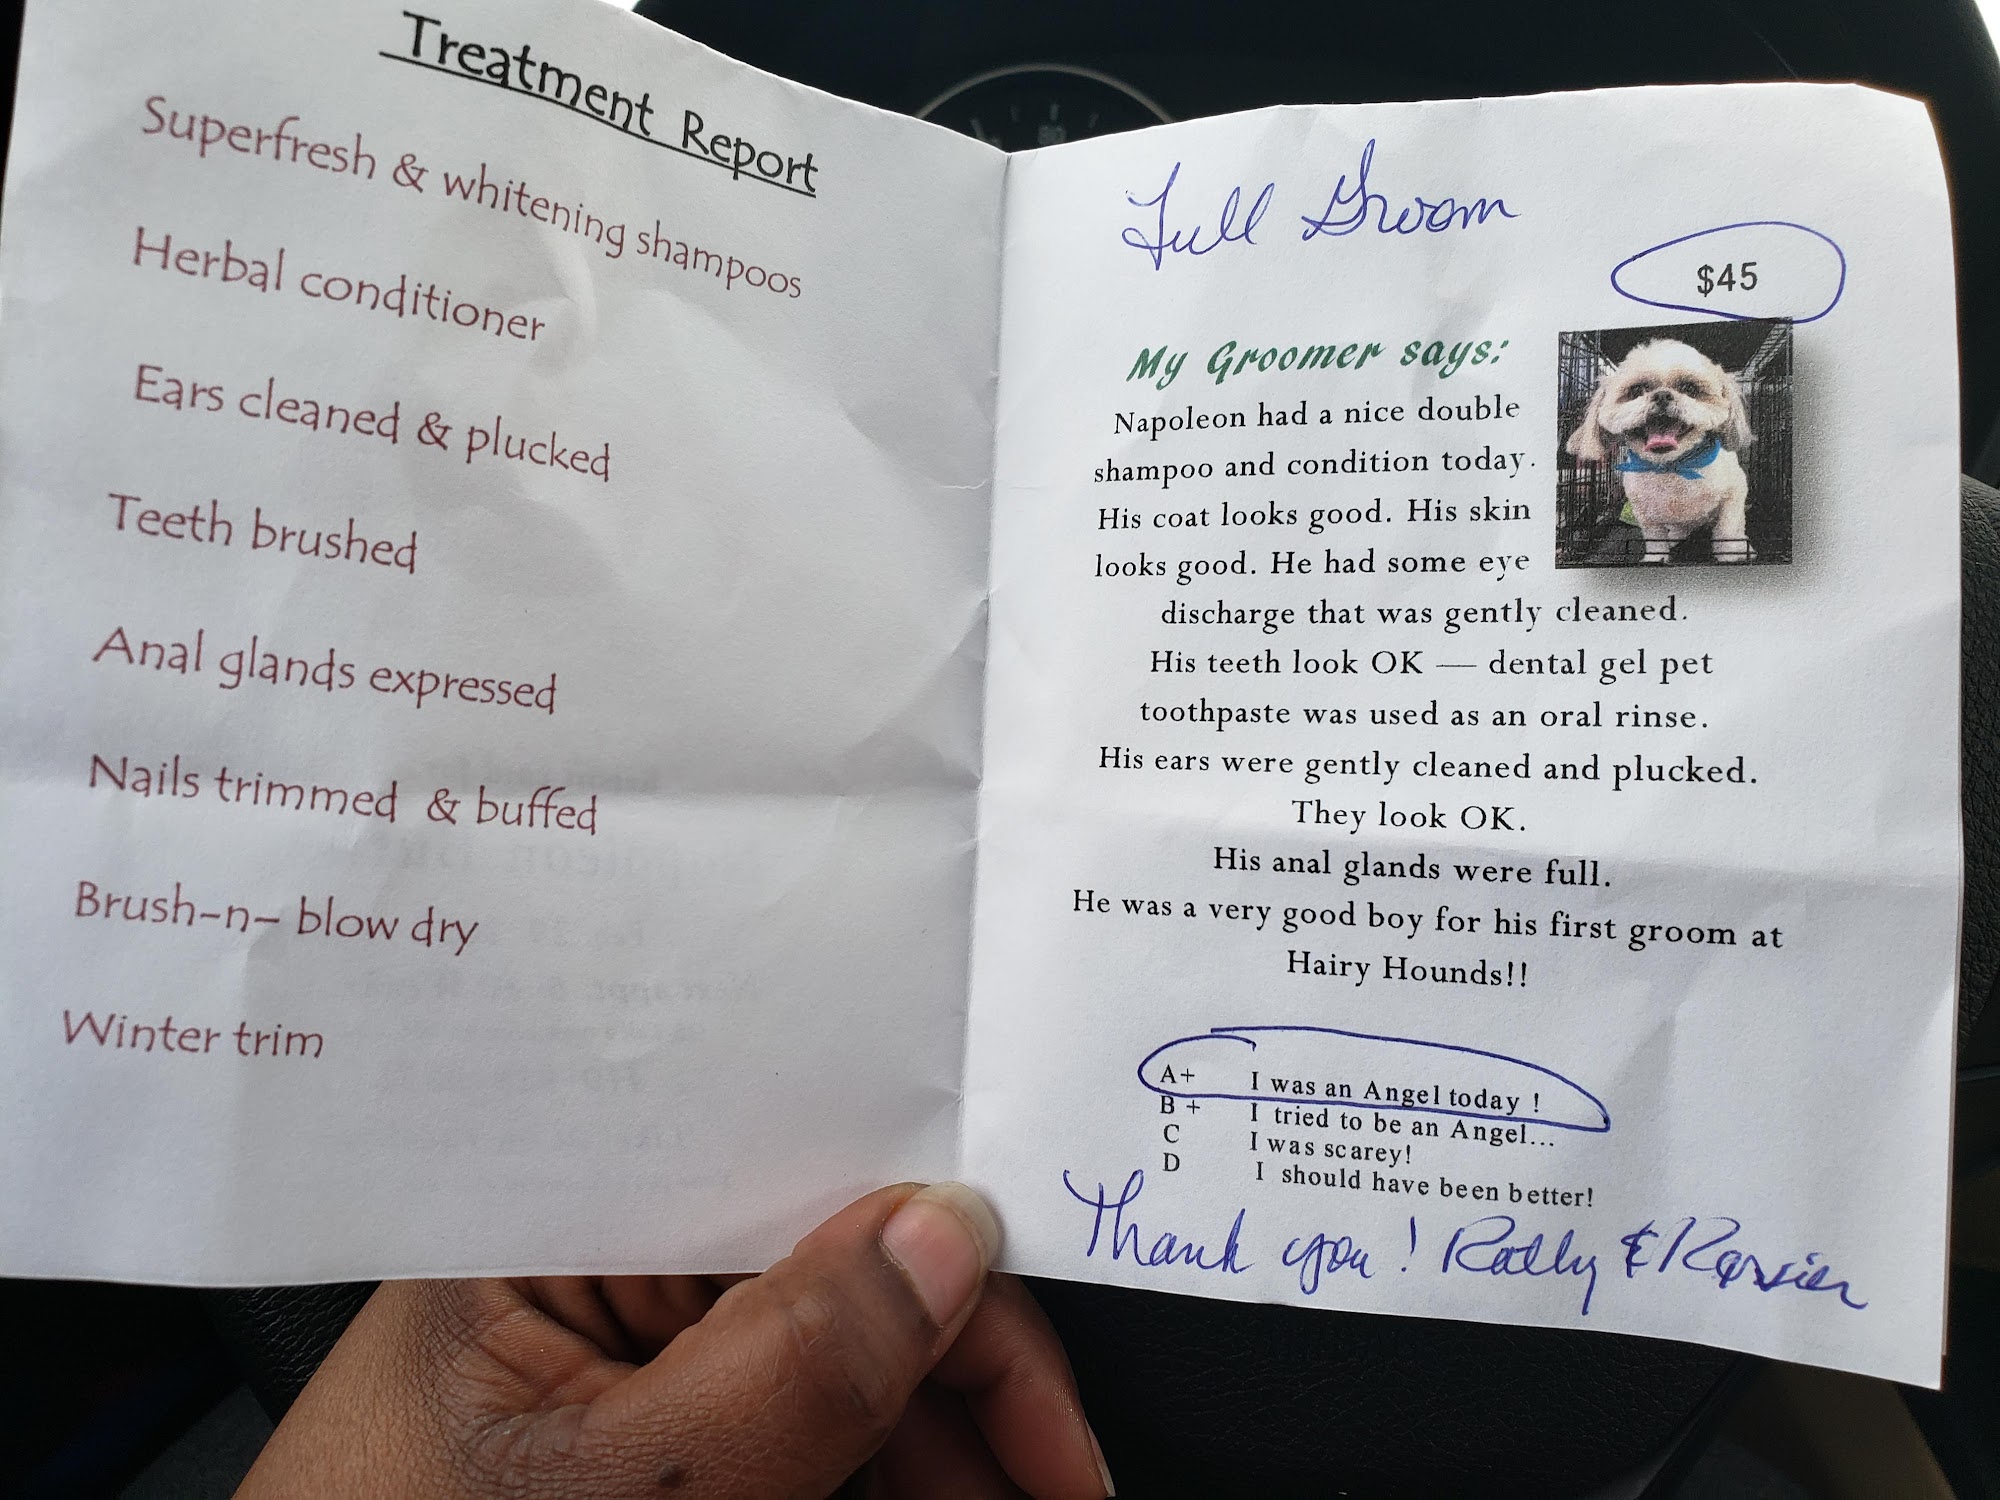 Treatment Report
Superfresh & whitening shampoos
Herbal conditioner
Ears cleaned & plucked
Teeth brushed
Anal glands expressed
Nails trimmed & buffed
Brush-n- blow dry
Winter trim
Full Groom
$45
My Groomer says:
Napoleon had a nice double
shampoo and condition today.
His coat looks good. His skin
looks good. He had some eye
discharge that was gently cleaned.
His teeth look OK — dental gel pet
toothpaste was used as an oral rinse.
His ears were gently cleaned and plucked.
They look OK.
His anal glands were full.
He was a very good boy for his first groom at
Hairy Hounds!!
A+ I was an Angel today !
B + I tried to be an Angel...
C I was scarey!
D I should have been better!
Thank you! &